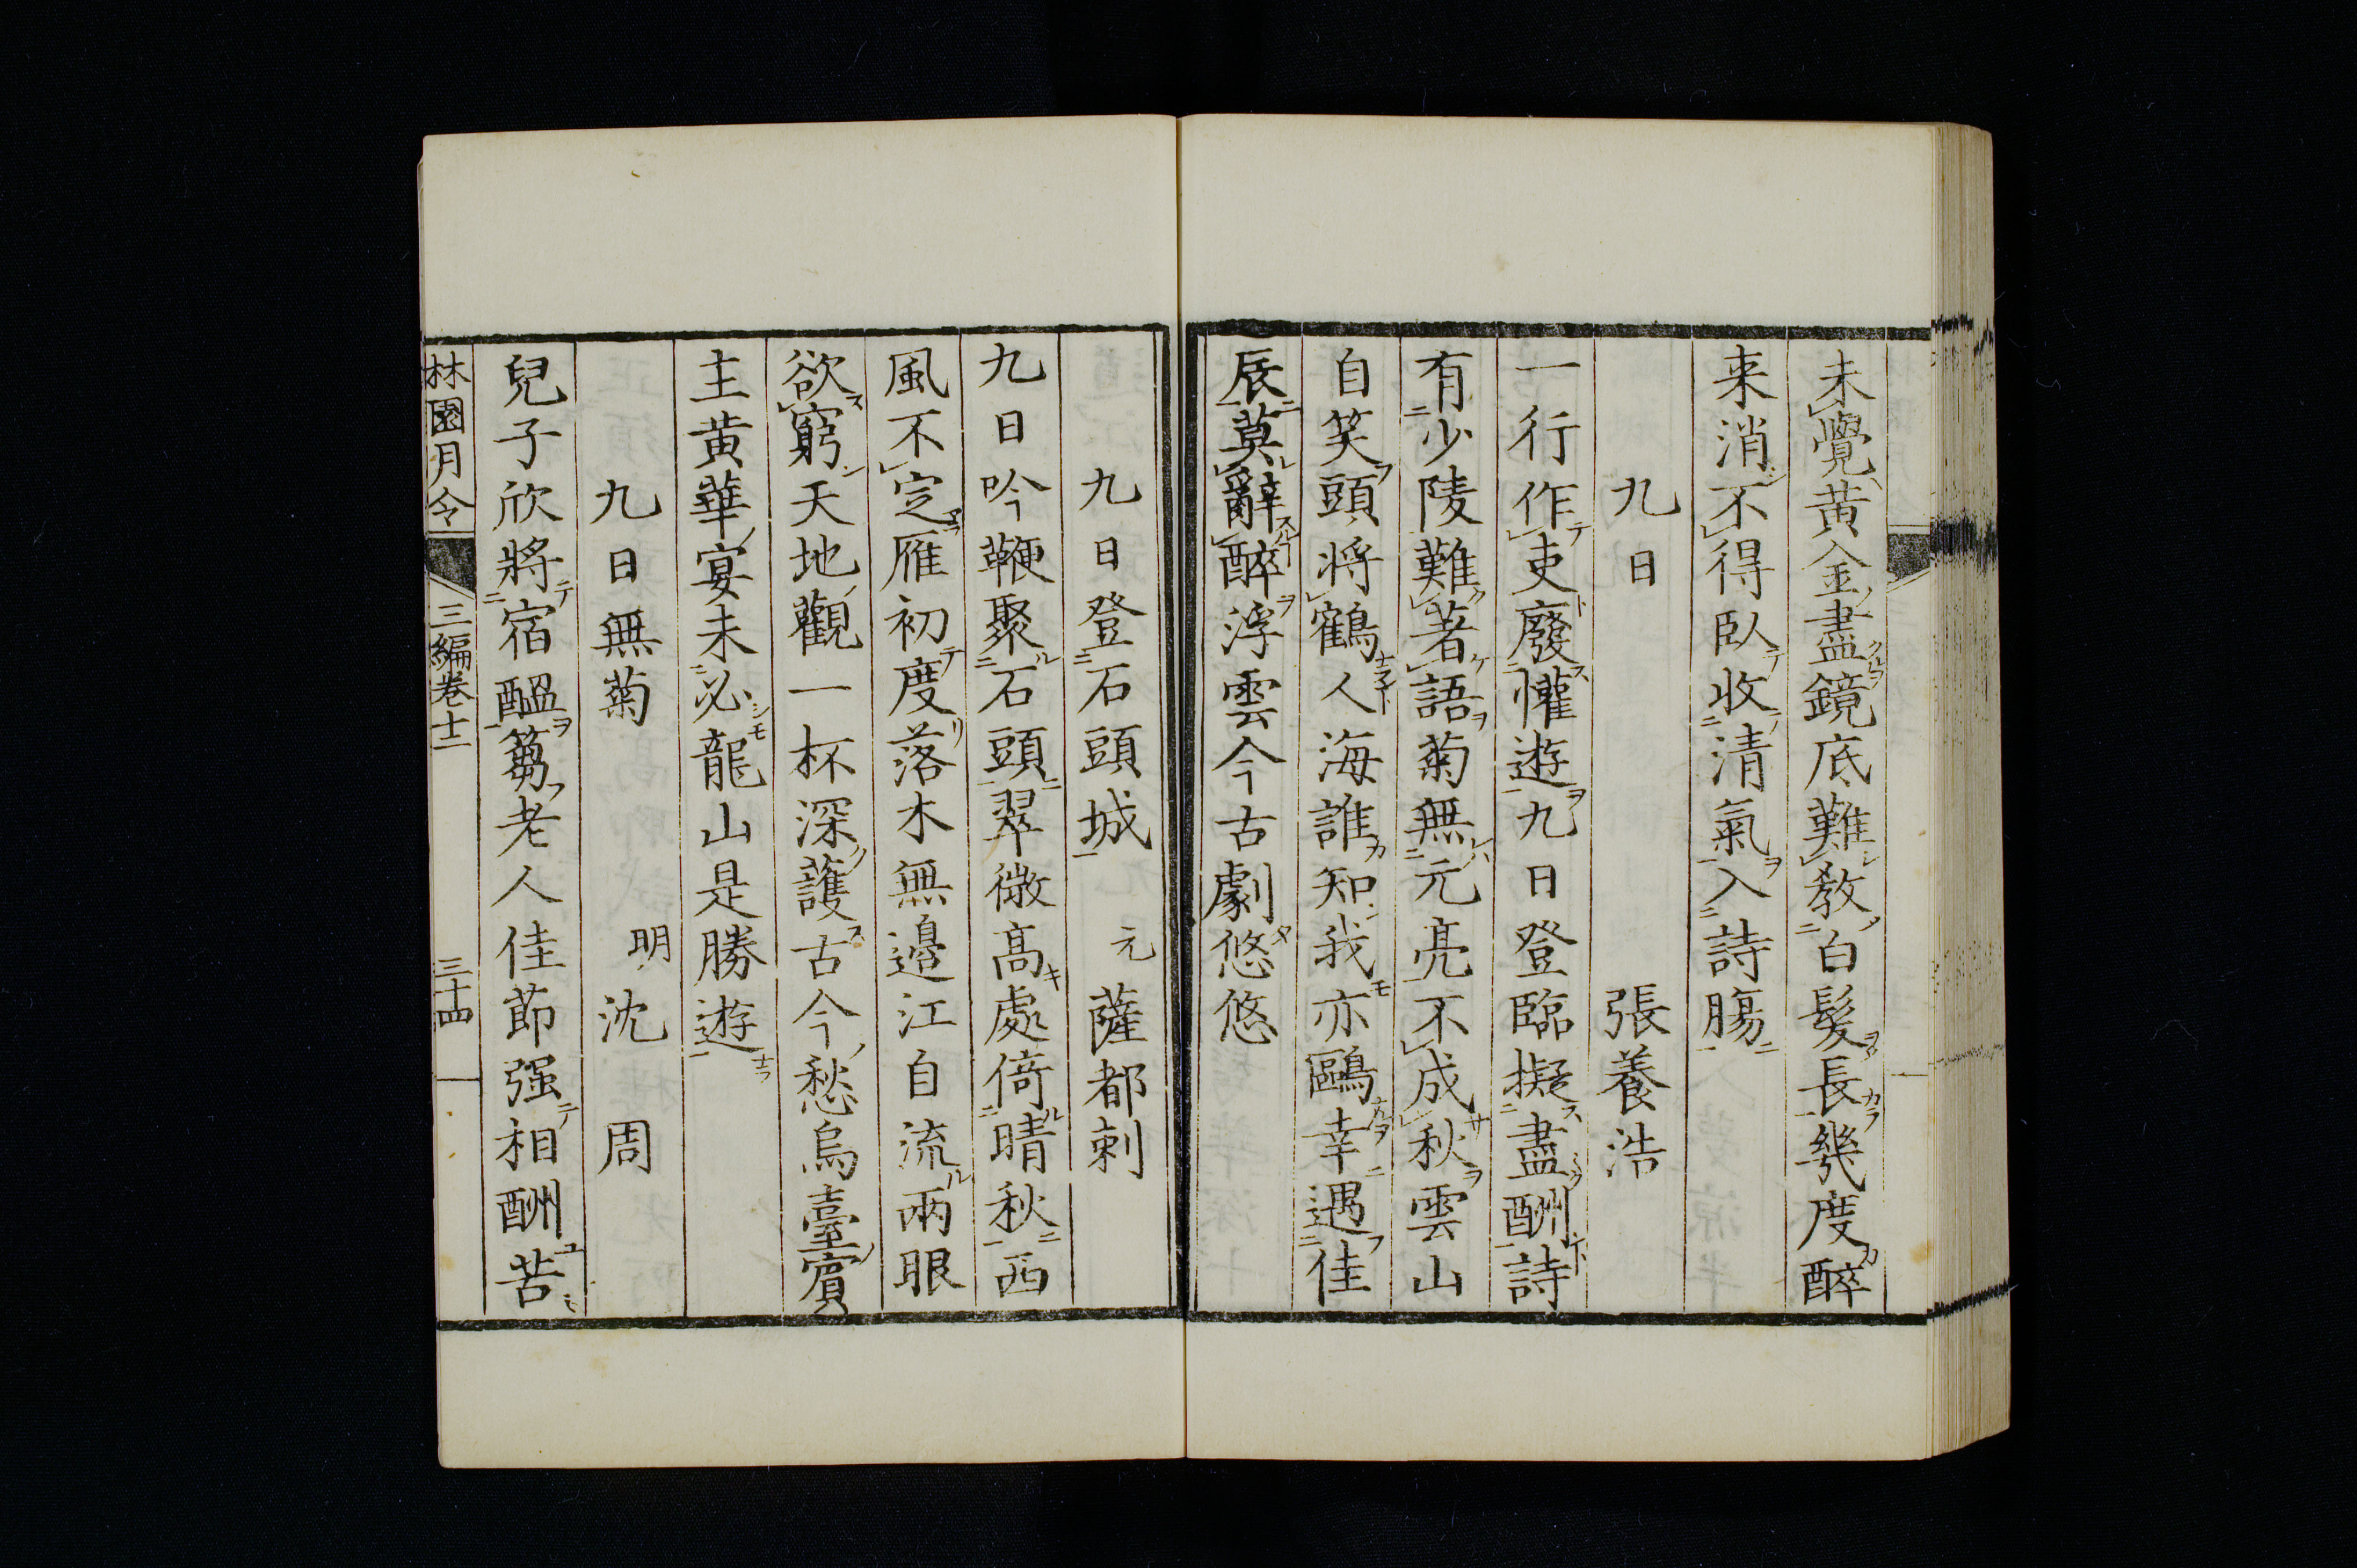 未覺黄金盡鏡底難教白髮長幾度醉
来消不得臥收清氣入詩腸
九日　張養浩
一行作吏廢懽遊九日登臨擬盡酬詩
有少陵難著語菊無元亮不成秋雲山
自笑頭將鶴人海誰知我亦鷗幸遇佳
辰莫辭醉浮雲今古劇悠悠
九日登石頭城　元　薩都剌
九日吟鞭聚石頭翠微高處倚晴秋西
風不定雁初度落木無邉江自流兩眼
欲窮天地觀一杯深護古今愁烏臺賓
主黄華宴未必龍山是勝遊
九日無菊　明　沈周
兒子欣將宿醖蒭老人佳節强相酬苦
林園月令　三編卷十一　三十四